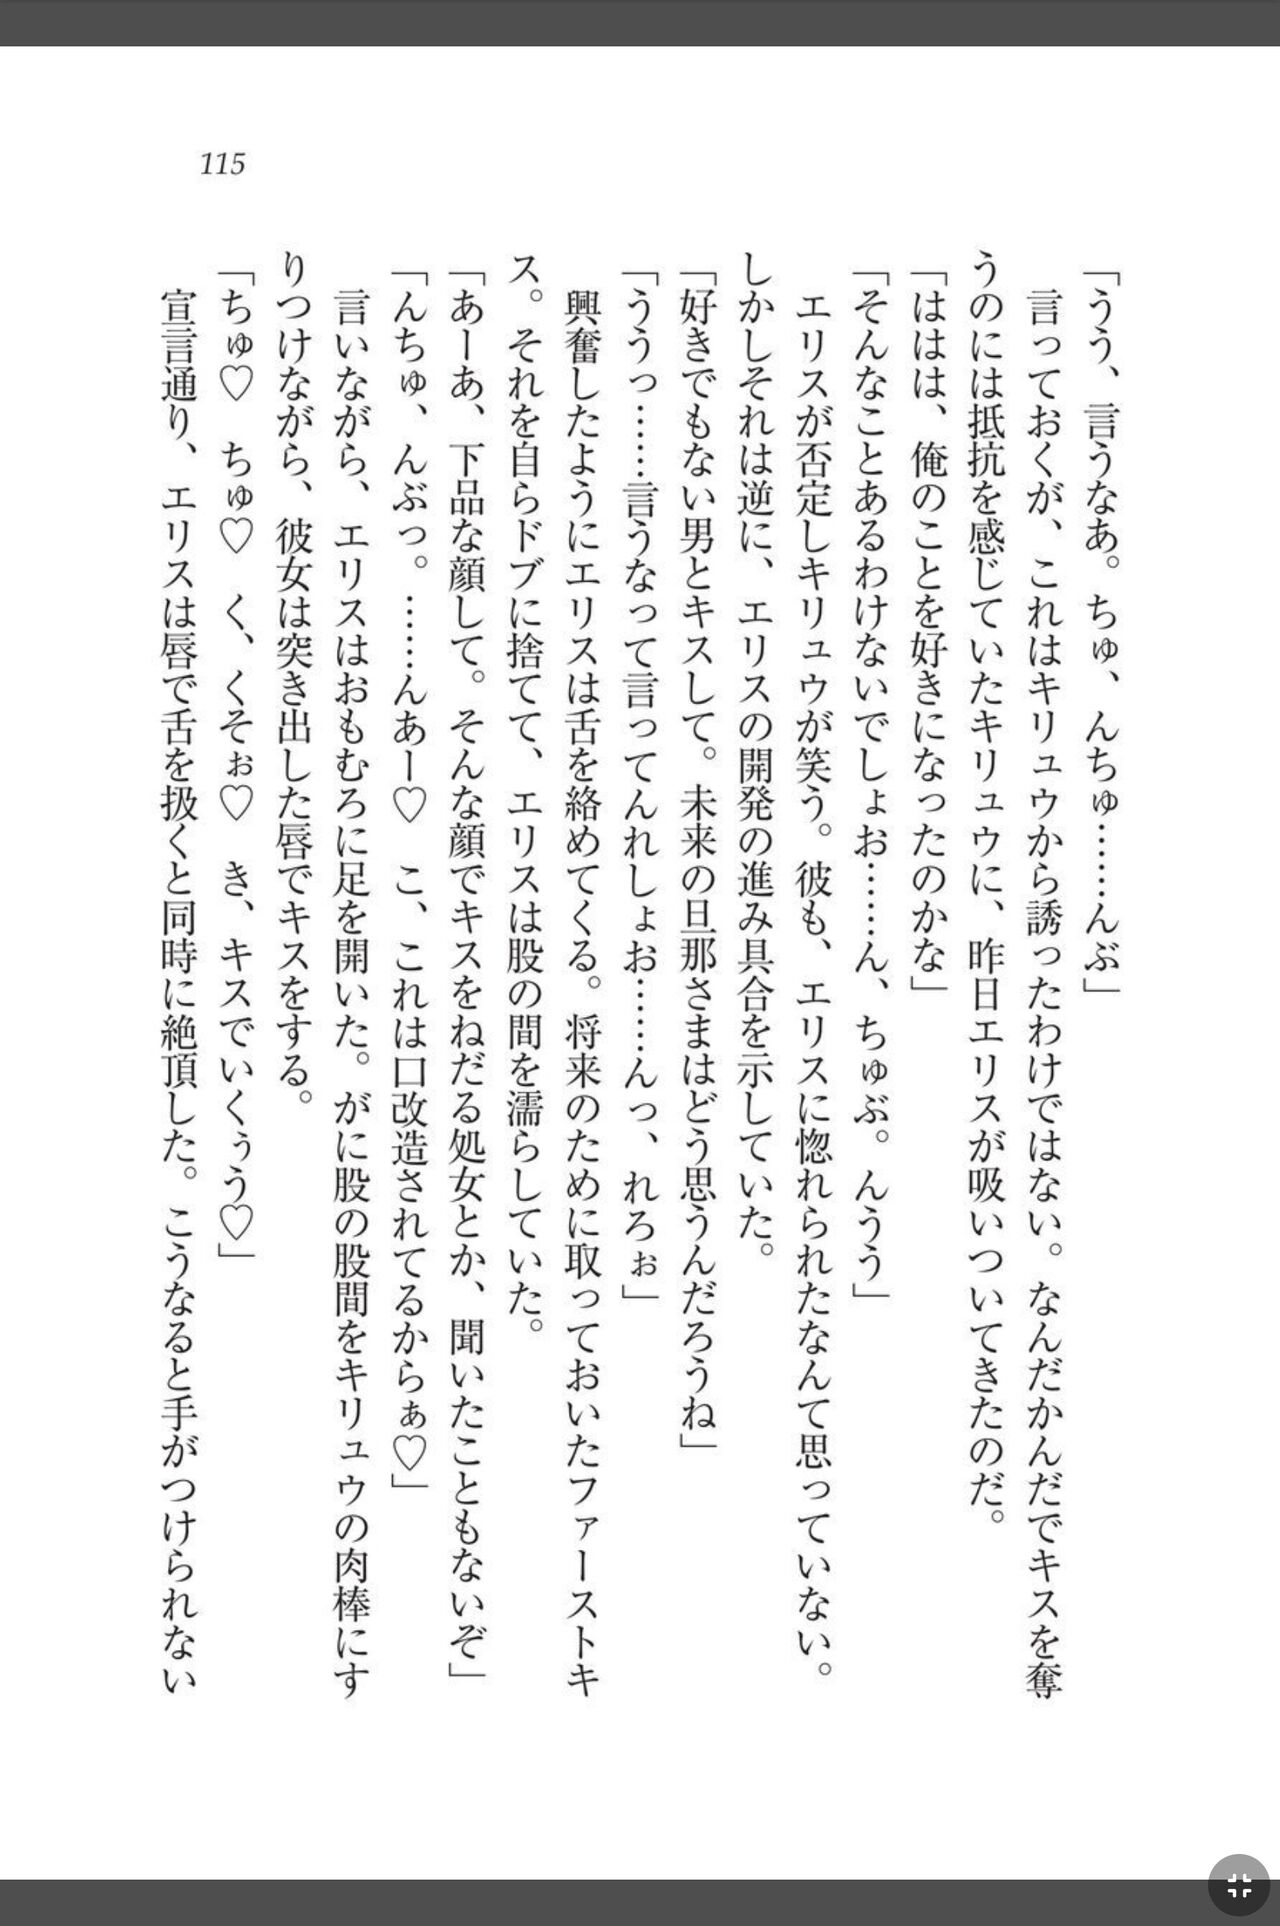 115
「うう、言うなあ。ちゅ、んちゅ……んぶ」
言っておくが、これはキリュウから誘ったわけではない。なんだかんだでキスを奪
うのには抵抗を感じていたキリュウに、昨日エリスが吸いついてきたのだ。
「ははは、俺のことを好きになったのかな」
「そんなことあるわけないでしょお……ん、ちゅぶ。んうう」
エリスが否定しキリュウが笑う。彼も、エリスに惚れられたなんて思っていない。
しかしそれは逆に、エリスの開発の進み具合を示していた。
「好きでもない男とキスして。未来の旦那さまはどう思うんだろうね」
「ううっ……言うなって言ってんれしょお……んっ、れろぉ」
興奮したようにエリスは舌を絡めてくる。将来のために取っておいたファーストキ
ス。それを自らドブに捨てて、エリスは股の間を濡らしていた。
「あーあ、下品な顔して。そんな顔でキスをねだる処女とか、聞いたこともないぞ」
「んちゅ、んぶっ。……んあー♡　こ、これは口改造されてるからぁ♡」
言いながら、エリスはおもむろに足を開いた。がに股の股間をキリュウの肉棒にす
りつけながら、彼女は突き出した唇でキスをする。
「ちゅ♡　ちゅ♡　く、くそぉ♡　き、キスでいくぅう♡」
宣言通り、エリスは唇で舌を扱くと同時に絶頂した。こうなると手がつけられない